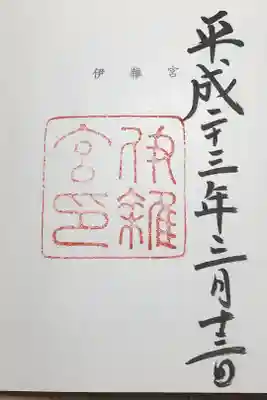 平成二十三年二月十二日
伊雜宮
伊雜
宮印